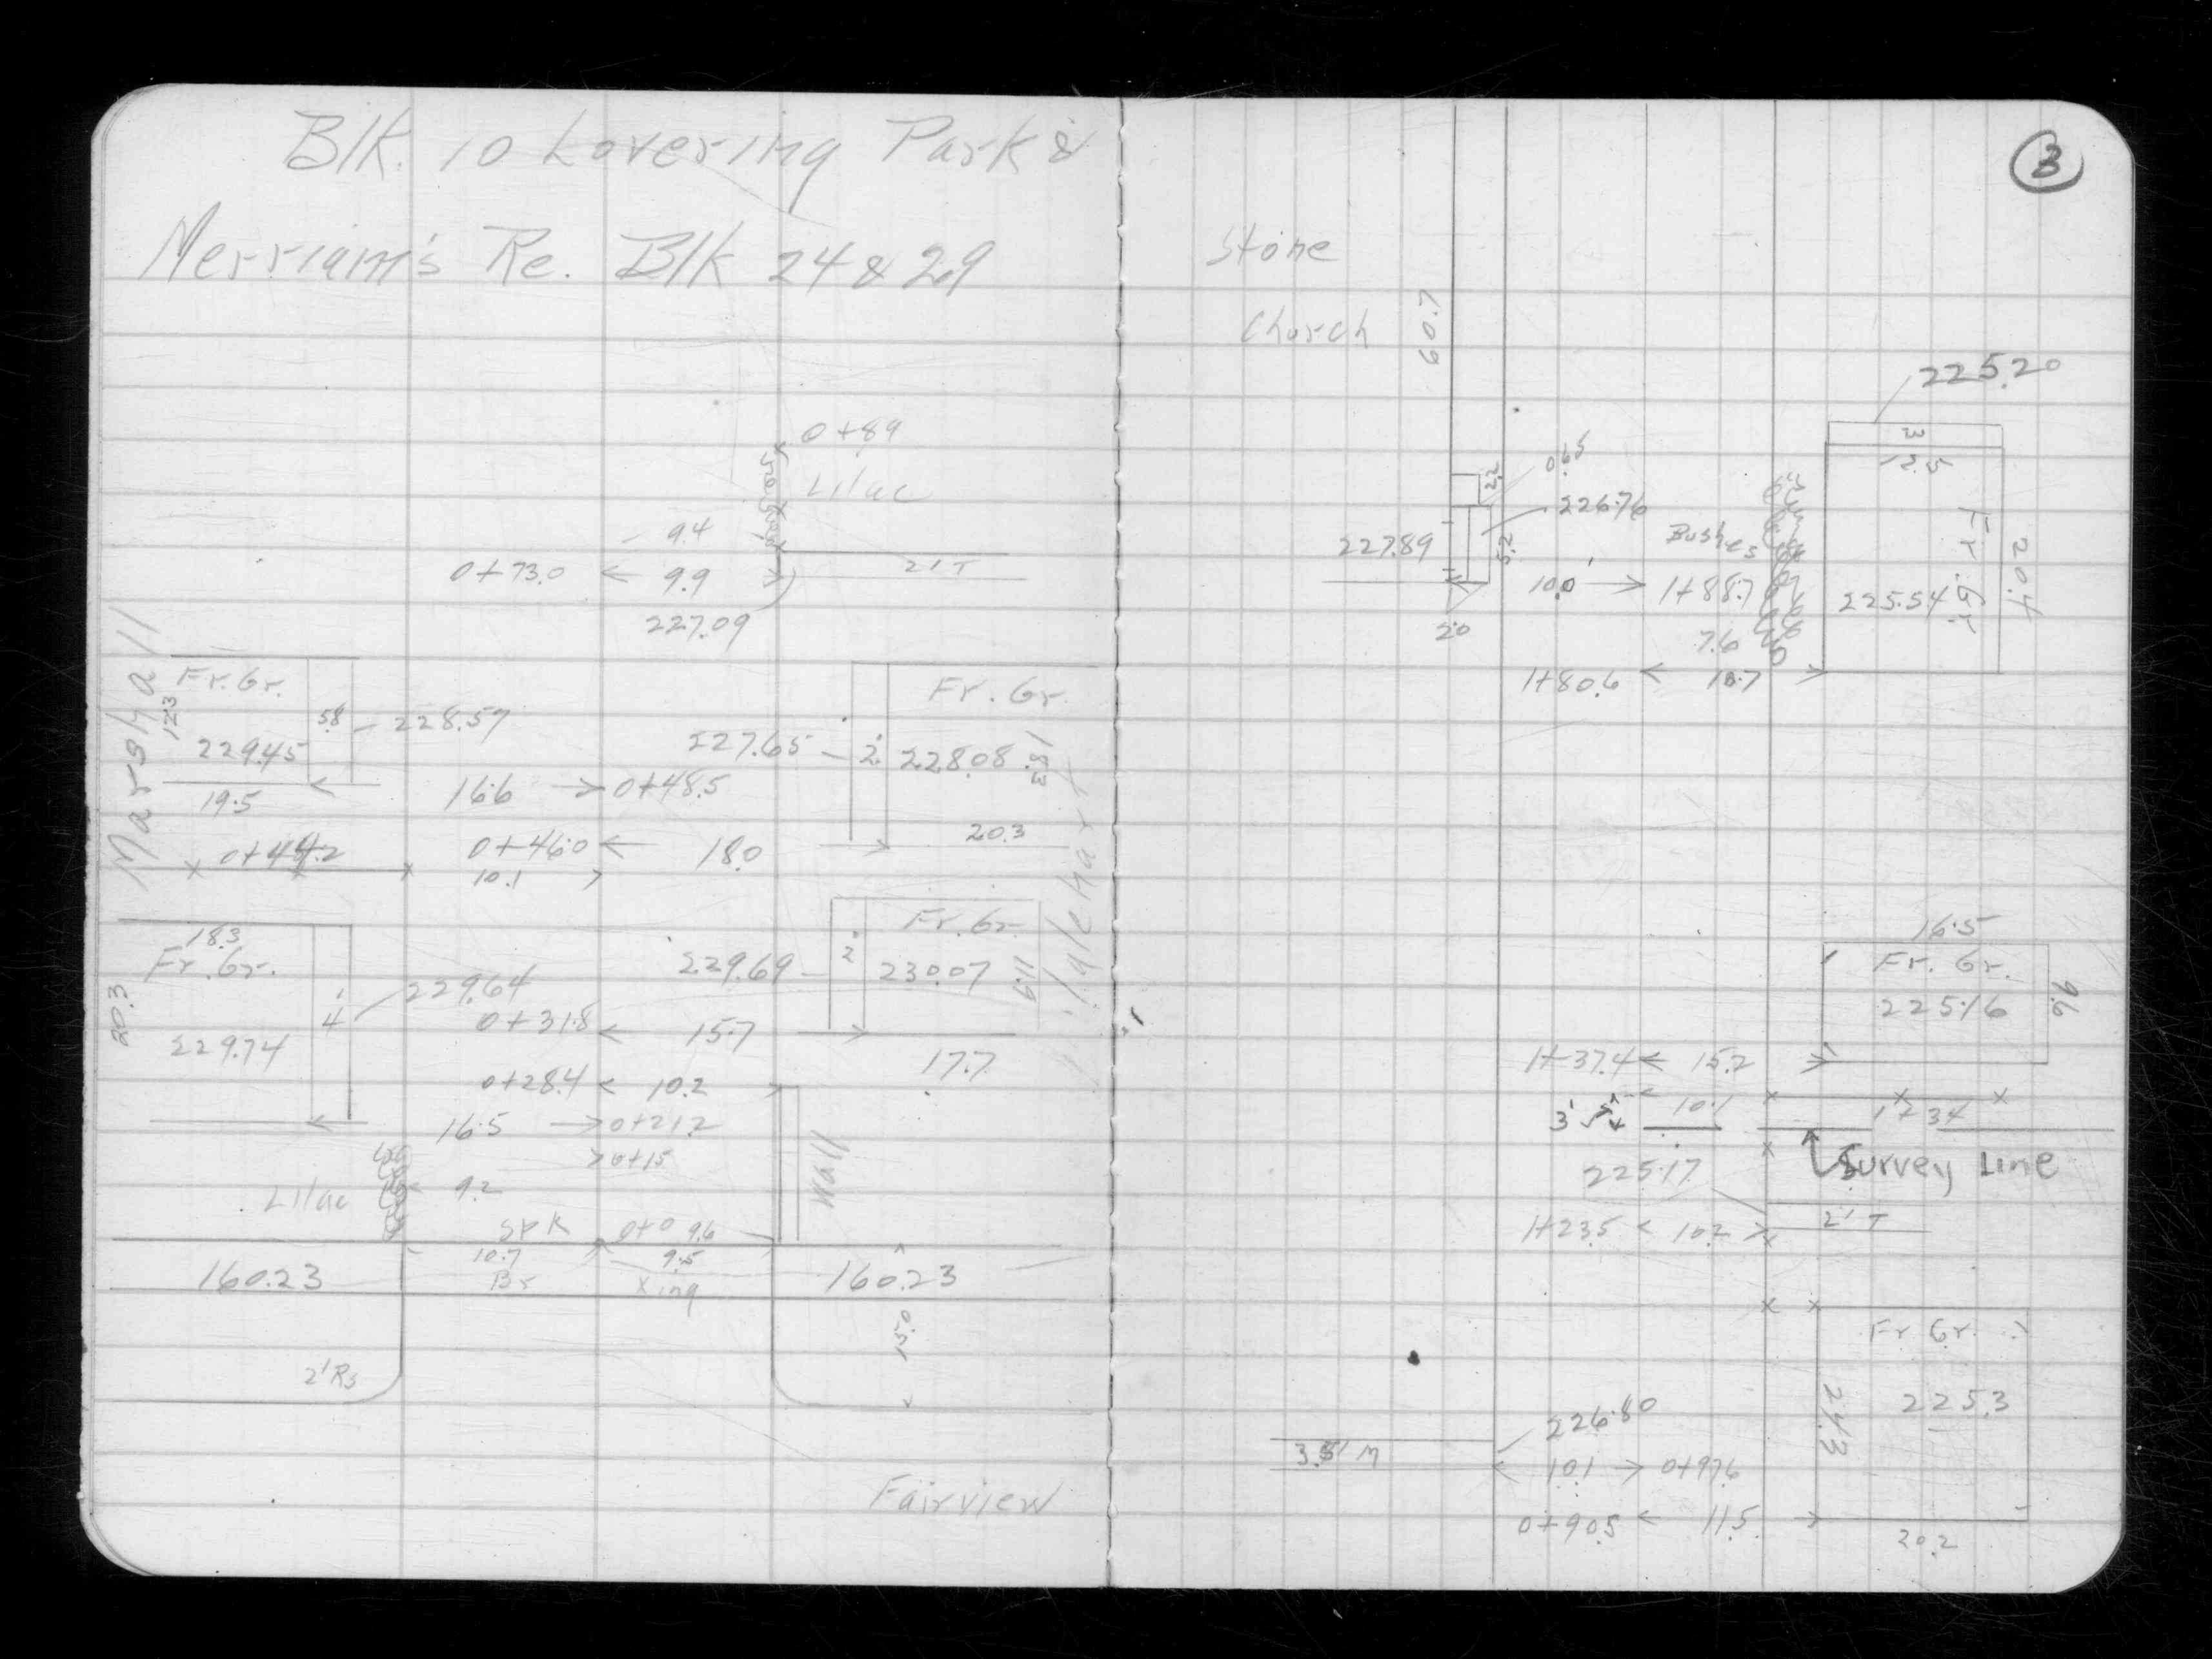 Blk. 10 Lovering Park &
Merriam's Re. Blk 24 & 29
0+89
Lilac
9.4
0+73.0 ← 9.9
2' T
227.09
Marshall
Fr. Gr.
12.3
5.8
228.57
229.45
19.5
16.6 → 0+48.5
Fr. Gr.
227.65
2'
228.08
18.3
20.3
0+44.2
0+46.0 ← 18.0
10.1
18.3
Fr. Gr.
20.3
4'
229.64
229.74
Fr. Gr.
229.69
2'
230.07
11.9
0+31.8 ← 15.7
17.7
0+28.4 ← 10.2
16.5 → 0+21.2
> 0+15
Wall
Lilac
9.2
SPK
0+0
9.6
160.23
10.7
Br
9.5
Xing
160.23
15.0
2' Rs
Fairview
3
Stone
Church
60.7
225.20
3
12.5
0.65
2.2
226.76
227.89
5.2
Bushes
Fr. Gr.
20.4
10.0 → 1+88.7
225.54
2.0
7.6
1+80.6 ←
16.5
Fr. Gr.
225.16
9.6
1+37.4 ← 15.2
10.1
3'
1+34
Survey Line
225.17
2' T
1+23.5 < 10.2 >
Fr Gr.
225.3
24.3
226.80
10.1 → 0+97.6
0+90.5 ← 11.5
20.2